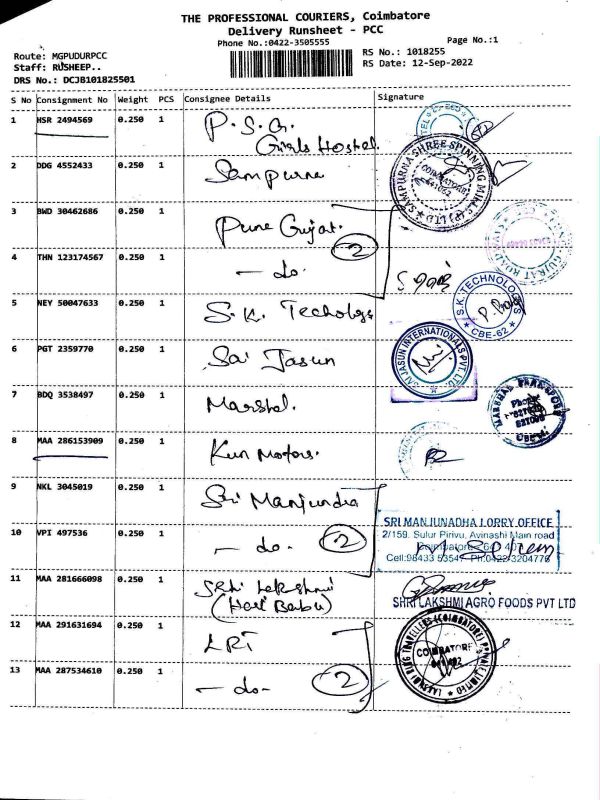 THE PROFESSIONAL COURIERS, Coimbatore
Delivery Runsheet - PCC
Phone No.:0422-3505555
Page No.:1
Route: MGPUDURPCC
Staff: RUSHEEP..
DRS No.: DCJB101825501
RS No.: 1018255
RS Date: 12-Sep-2022
S No Consignment No Weight PCS Consignee Details Signature
1 HSR 2494569 0.250 1 P.S.G. Girls Hostel
2 DDG 4552433 0.250 1 Sampurna
SAMPURNA SHREE SPINNING MILLS (P) LTD
COIMBATORE
3 BWD 30462686 0.250 1 Pune Gujat. 2
GUJRAT ROAD
4 THN 123174567 0.250 1 - do.
5 NEY 50047633 0.250 1 S.K. Techologs
S.K. TECHNOLOGIES
CBE-62
6 PGT 2359770 0.250 1 Sai Jasun
SAI JASUN INTERNATIONALS PVT. LTD
7 BDQ 3538497 0.250 1 Marshal.
8 MAA 286153909 0.250 1 Kun Motors.
9 NKL 3045019 0.250 1 Sri Manjunda
SRI MANJUNADHA LORRY OFFICE
2/159. Sulur Pirivu, Avinashi Main road
10 VPI 497536 0.250 1 - do. 2
11 MAA 281666098 0.250 1 SRhi Lakshmi
(Hari Babu)
SHRI LAKSHMI AGRO FOODS PVT LTD
12 MAA 291631694 0.250 1 LRT
COIMBATORE
13 MAA 287534610 0.250 1 - do - 2